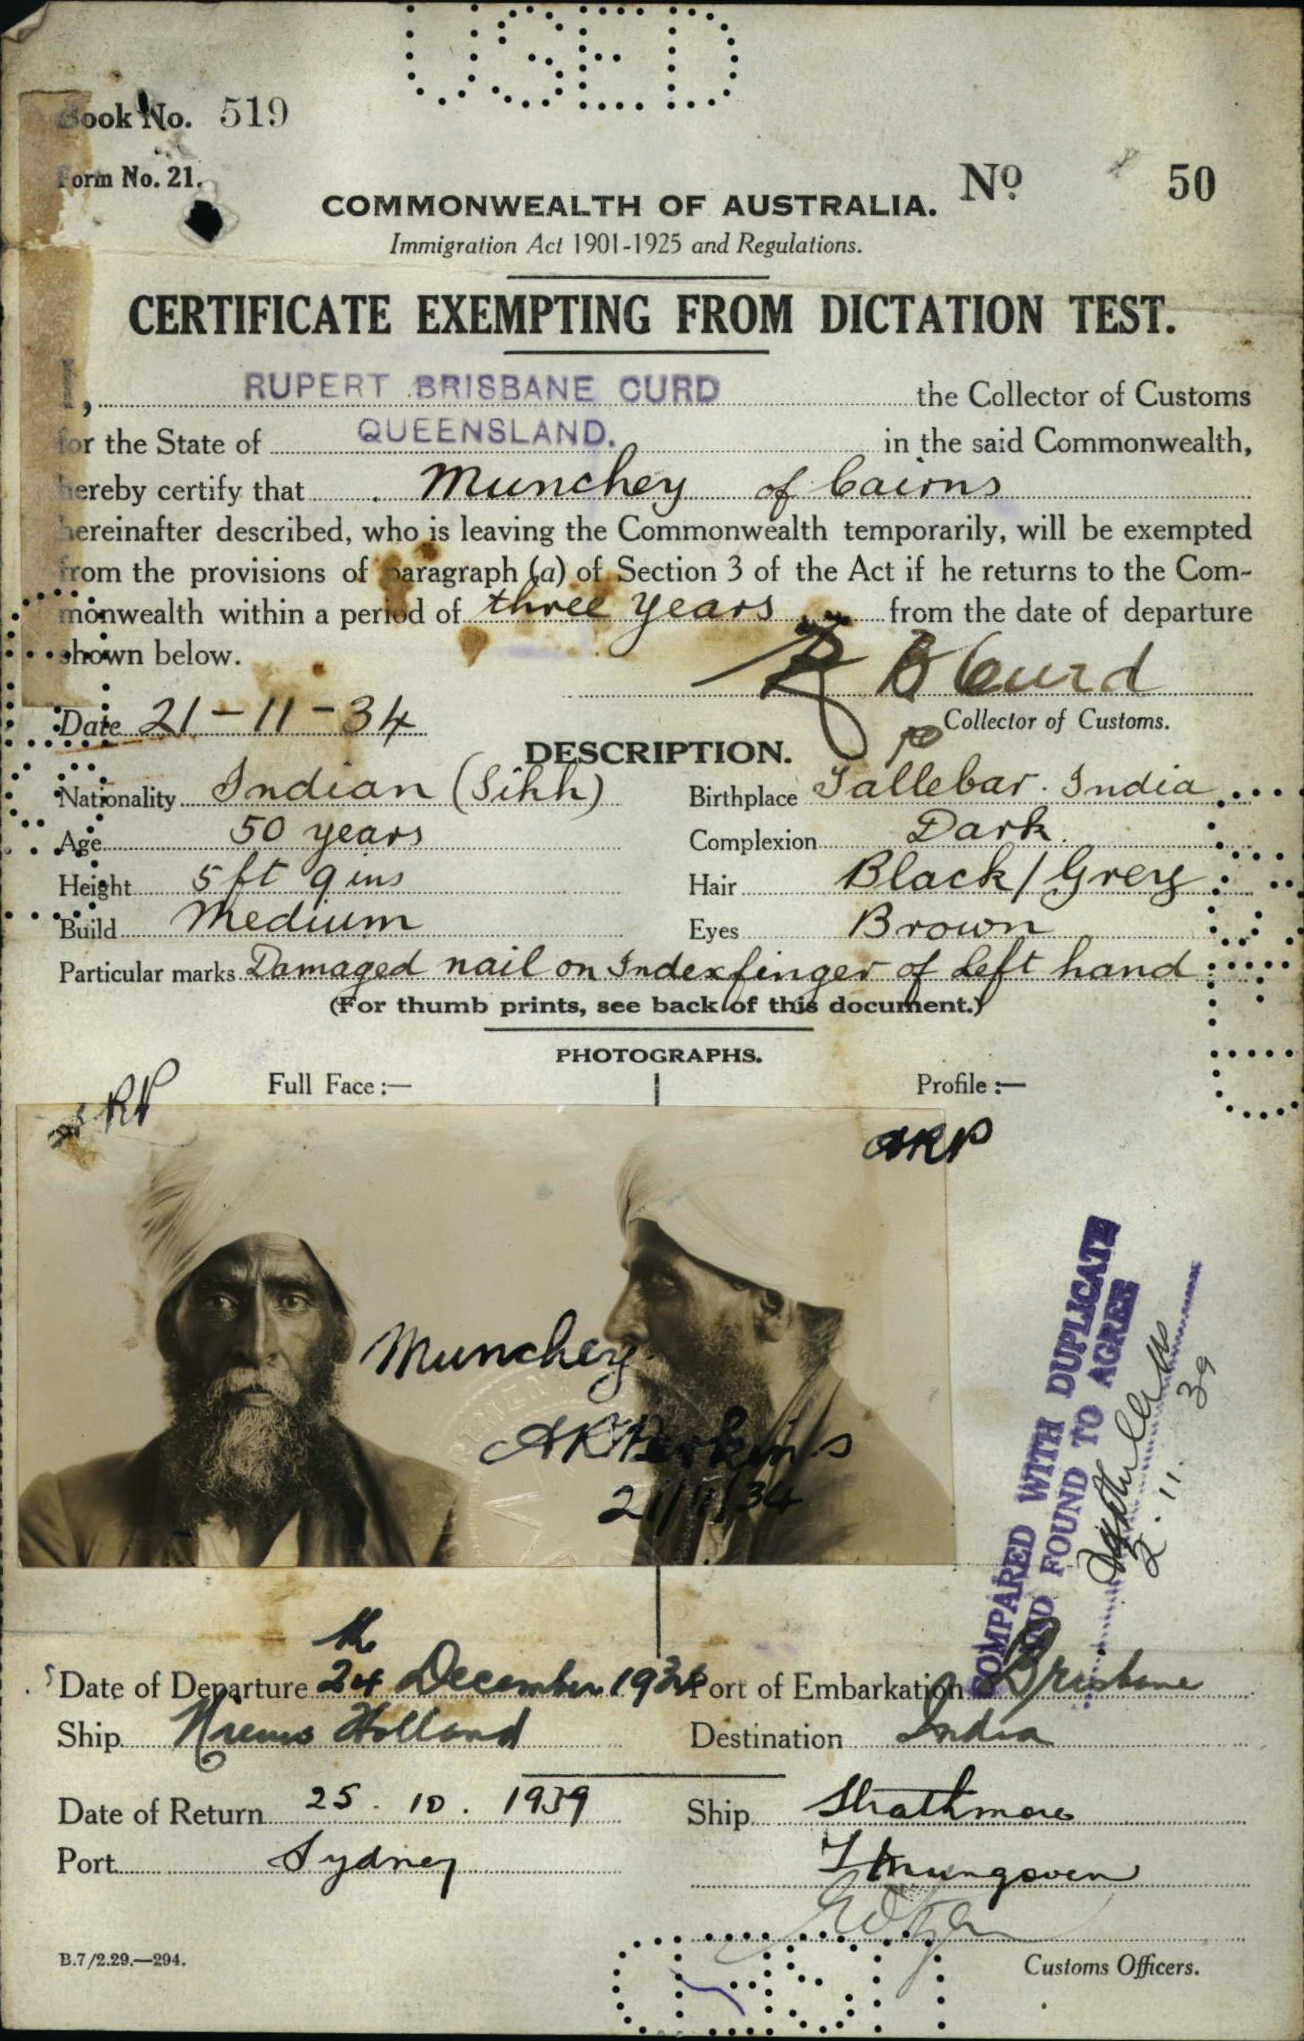 USED
Book No. 519
Form No. 21.
COMMONWEALTH OF AUSTRALIA. No. 50
Immigration Act 1901-1925 and Regulations.
CERTIFICATE EXEMPTING FROM DICTATION TEST.
I, RUPERT BRISBANE CURD the Collector of Customs
for the State of QUEENSLAND. in the said Commonwealth,
hereby certify that Munchey of Cairns
hereinafter described, who is leaving the Commonwealth temporarily, will be exempted
from the provisions of paragraph (a) of Section 3 of the Act if he returns to the Com-
monwealth within a period of three years from the date of departure
shown below.
R B Curd
Date 21-11-34
Collector of Customs.
DESCRIPTION.
Nationality Indian (Sikh) Birthplace Tallebar. India
Age 50 years Complexion Dark.
Height 5 ft 9 ins Hair Black/Grey
Build Medium Eyes Brown
Particular marks Damaged nail on Indexfinger of Left hand
(For thumb prints, see back of this document.)
PHOTOGRAPHS.
Full Face :— Profile :—
ARP
ARP
Munchey
AR Perkins
21/11/34
COMPARED WITH DUPLICATE
AND FOUND TO AGREE
2.11.39
Date of Departure 24th December 1934 Port of Embarkation Brisbane
Ship Nieuw Holland Destination India
Date of Return 25.10.1939 Ship Strathmore
Port Sydney
B.7/2.29.—294.
Customs Officers.